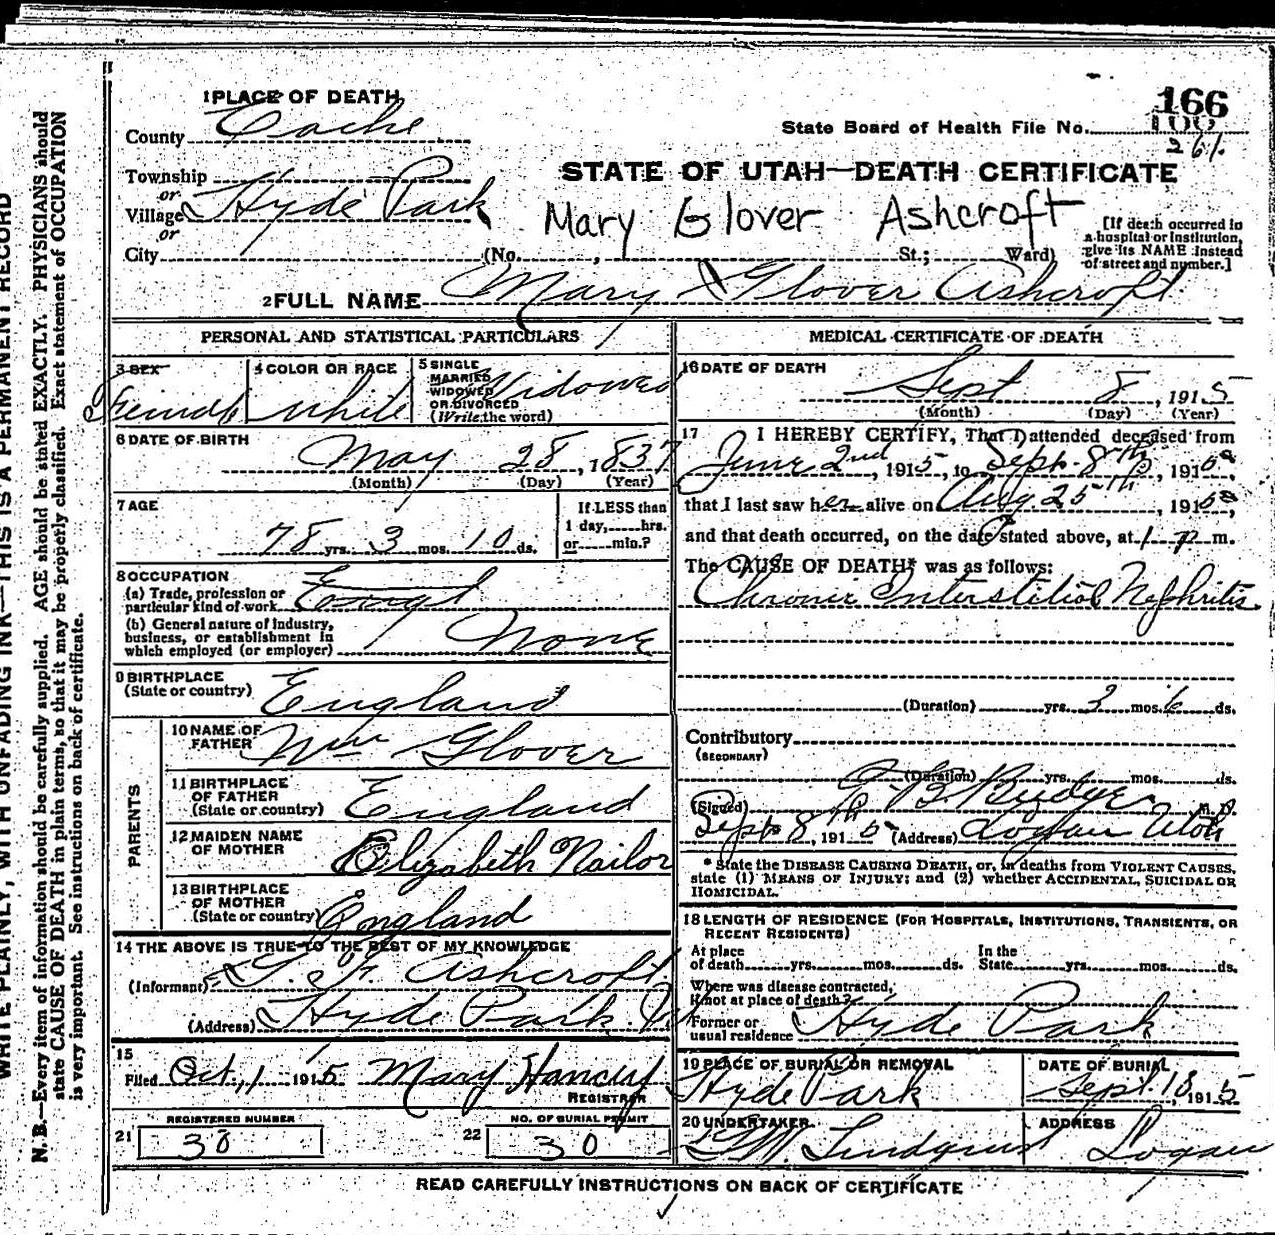 WRITE PLAINLY, WITH UNFADING INK—THIS IS A PERMANENT RECORD
N. B.—Every item of information should be carefully supplied. AGE should be stated EXACTLY. PHYSICIANS should
state CAUSE OF DEATH in plain terms, so that it may be properly classified. Exact statement of OCCUPATION
is very important. See instructions on back of certificate.
1 PLACE OF DEATH
County Cache
Township
or
Village Hyde Park
or
City (No. , St.; Ward)
166
State Board of Health File No.
261.
STATE OF UTAH—DEATH CERTIFICATE
Mary Glover Ashcroft
[If death occurred in
a hospital or institution,
give its NAME instead
of street and number.]
2 FULL NAME Mary Glover Ashcroft
PERSONAL AND STATISTICAL PARTICULARS
3 SEX Female
4 COLOR OR RACE White
5 SINGLE
MARRIED
WIDOWED
OR DIVORCED
(Write the word)
Widowed
6 DATE OF BIRTH
May 28, 1837
(Month) (Day) (Year)
7 AGE
78 yrs. 3 mos. 10 ds.
If LESS than
1 day, hrs.
or min.?
8 OCCUPATION
(a) Trade, profession or
particular kind of work
(b) General nature of industry,
business, or establishment in
which employed (or employer) None
9 BIRTHPLACE
(State or country) England
PARENTS
10 NAME OF
FATHER Wm Glover
11 BIRTHPLACE
OF FATHER
(State or country) England
12 MAIDEN NAME
OF MOTHER Elizabeth Nailor
13 BIRTHPLACE
OF MOTHER
(State or country) England
14 THE ABOVE IS TRUE TO THE BEST OF MY KNOWLEDGE
(Informant) Ashcroft
(Address) Hyde Park
15
Filed Oct. 1 1915 Mary Hancey
REGISTRAR
REGISTERED NUMBER
21 38
NO. OF BURIAL PERMIT
22 30
MEDICAL CERTIFICATE OF DEATH
16 DATE OF DEATH
Sept 8, 1915
(Month) (Day) (Year)
17 I HEREBY CERTIFY, That I attended deceased from
June 2nd, 1915, to Sept. 8th, 1915,
that I last saw her alive on Aug 25th, 1915,
and that death occurred, on the date stated above, at 1 P m.
The CAUSE OF DEATH* was as follows:
Chronic Interstitial Nephritis
(Duration) yrs. 3 mos. 6 ds.
Contributory
(SECONDARY)
(Duration) yrs. mos. ds.
(Signed) B. Budge M. D.
Sept 8th, 1915 (Address) Logan Utah
* State the DISEASE CAUSING DEATH, or, in deaths from VIOLENT CAUSES,
state (1) MEANS OF INJURY; and (2) whether ACCIDENTAL, SUICIDAL OR
HOMICIDAL.
18 LENGTH OF RESIDENCE (FOR HOSPITALS, INSTITUTIONS, TRANSIENTS, OR
RECENT RESIDENTS)
At place
of death yrs. mos. ds.
In the
State yrs. mos. ds.
Where was disease contracted,
if not at place of death?
Former or
usual residence Hyde Park
19 PLACE OF BURIAL OR REMOVAL
Hyde Park
DATE OF BURIAL
Sept. 1915
20 UNDERTAKER
Lindquist
ADDRESS
Logan
READ CAREFULLY INSTRUCTIONS ON BACK OF CERTIFICATE